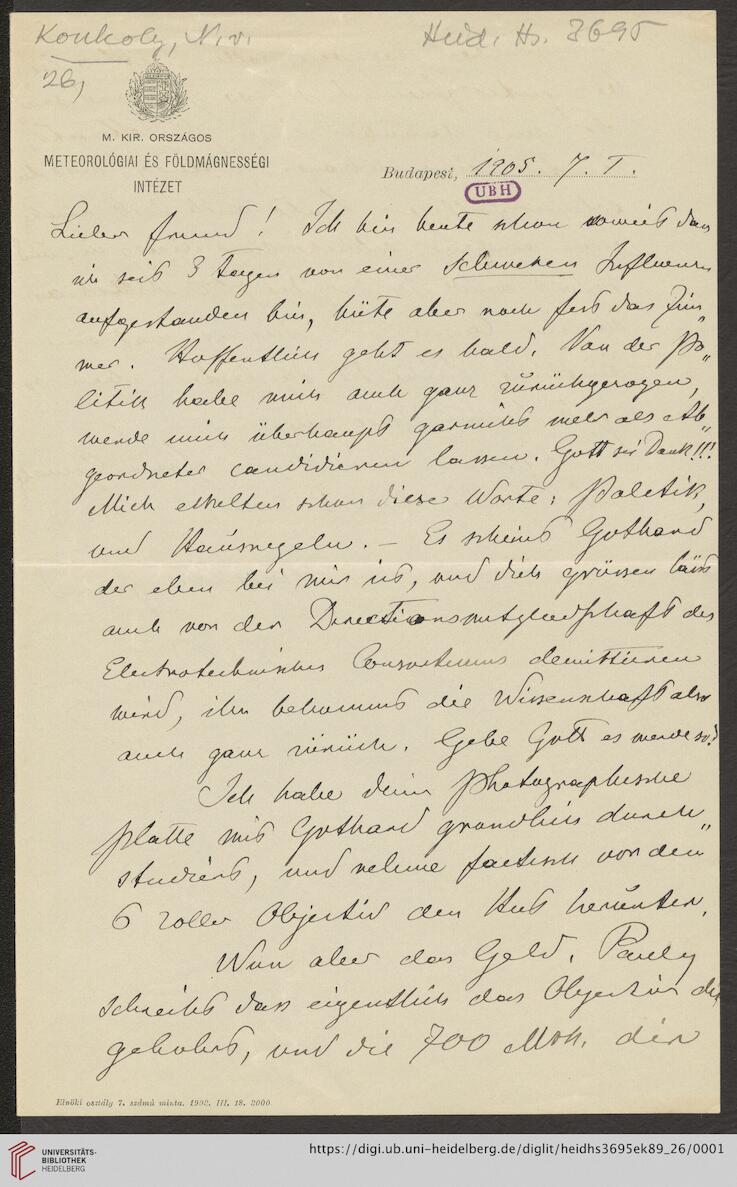 Konkoly, N. v. Heid. Hs. 3695
26,
M. KIR. ORSZÁGOS
METEOROLÓGIAI ÉS FÖLDMÁGNESSÉGI
INTÉZET
Budapest, 1905. 7. I.
UBH
Lieber Freund! Ich bin heute schon soweit dass
ich seit 3 Tagen von einer schweren Influenza
aufgestanden bin, hüte aber noch fest das Zim„
mer. Hoffentlich geht es bald. Von der Po„
litik habe mich auch ganz zurückgezogen,
werde mich überhaupt garnicht mehr als Ab„
geordneter candidieren lassen. Gott sei Dank!!!
Mich eckelten schon diese Worte: Politik,
und Hausregeln. – Es scheint Gothard
der eben bei mir ist, und dich grüssen lässt
auch von der Directionsmitgliedschaft des
Electrotechnischen Consortiums demittieren
wird, ihn bekommt die Wissenschaft also
auch ganz zurück. Gebe Gott es werde so!
Ich habe deine Photographische
Platte mit Gothard grundlich durch„
studiert, und nehme factisch vor dem
6 zoller Objectiv den Hut herunter.
Nun aber das Geld. Pauly
schreibt dass eigentlich das Objectiv dir
gehöhrt, und die 700 Mk. dir
Elnöki osztály 7. számú minta. 1903. III. 18. 3000
UNIVERSITÄTS-
BIBLIOTHEK
HEIDELBERG
https://digi.ub.uni-heidelberg.de/diglit/heidhs3695ek89_26/0001